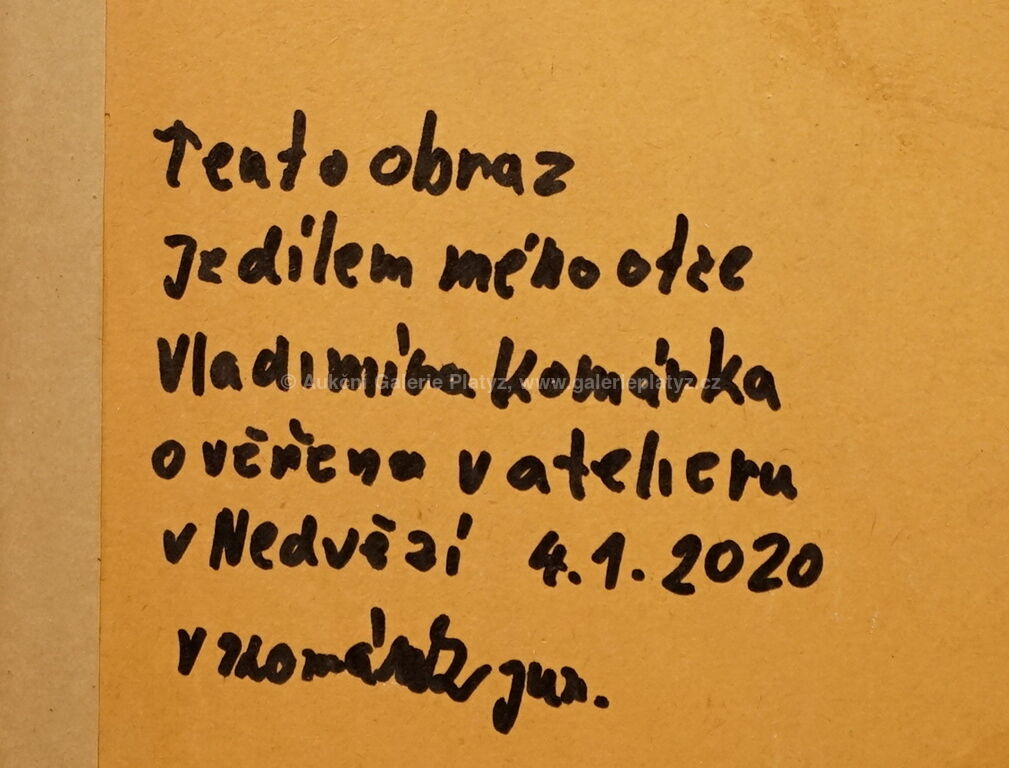 Tento obraz
je dílem mého otce
Vladimíra Komárka
ověřeno v atelieru
© Aukční Galerie Platýz, www.galerieplatyz.cz
v Nedvězí 4.1.2020
Komárek jun.